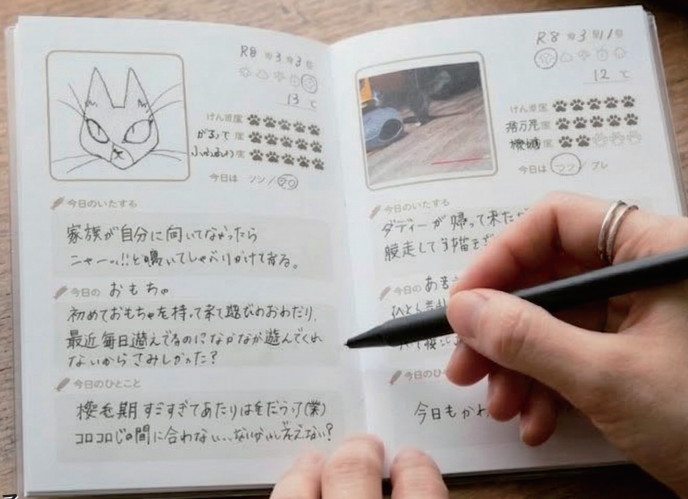 R8年3月3日
13℃
けんま度
がるって度
ふみふみ度
今日は ツン/デレ
今日のいたずる
家族が自分に向いてなかったら
ニャーッ!!と鳴いてしゃべりかけてきる。
今日の おもちゃ
初めておもちゃを持って来て遊びのおねだり。
最近毎日遊んでるのになかなか遊んでくれ
ないからさみしかった?
今日のひとこと
換毛期すごすぎてあたりは毛だらけ(笑)
コロコロじゃ間に合わない
R8年3月11日
12℃
けんま度
度
機嫌度
今日は ツン/デレ
今日のいたずる
ダディーが帰って来た
今日の あそ
今日のひ
今日もかわ